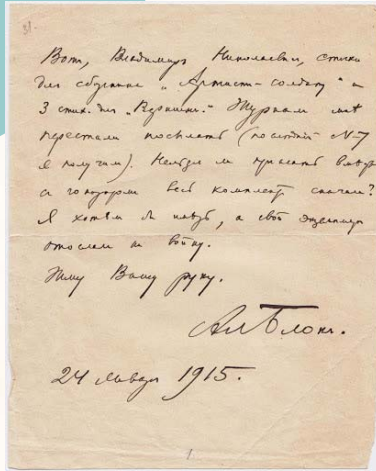 31.
Вотъ, Владимиръ Николаевичъ, стихи
для сборника "Артистъ-солдату" и
3 стих. для "Вершинъ". Журналъ мнѣ
перестали посылать (послѣдній N-7
я получилъ). Нельзя ли прислать
весь комплектъ сначала?
Я хотѣлъ бы, а свой
отослалъ на войну.
Жму Вашу руку.
Ал Блокъ.
24 января 1915.
1